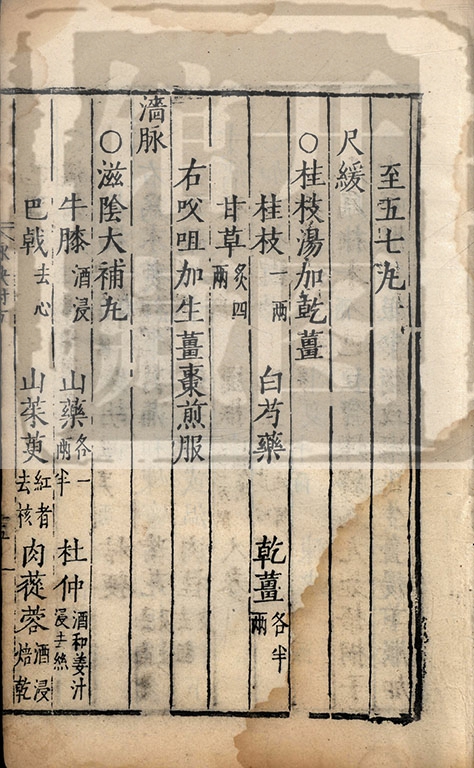 至五七丸
尺緩
○桂枝湯加乾薑
桂枝一兩 白芍藥 乾薑各半兩
甘草炙四兩
右㕮咀加生薑棗煎服
濇脉
○滋陰大補丸
牛膝酒浸 山藥各一兩半 杜仲酒和姜汁浸去絲
巴戟去心 山茱萸紅者去核 肉蓯蓉酒浸焙乾